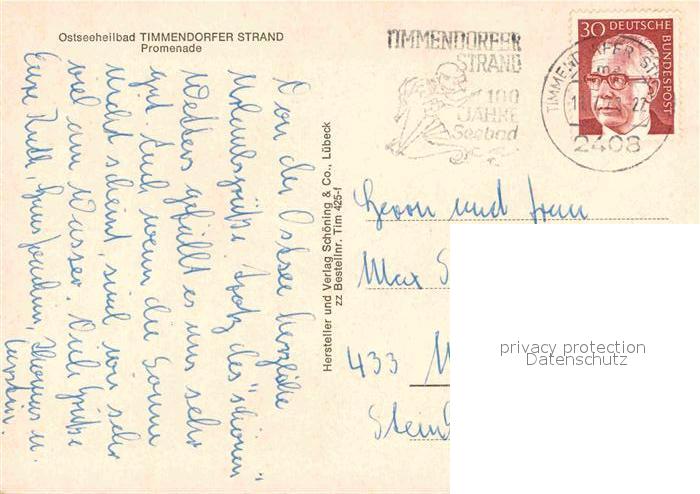 Ostseeheilbad TIMMENDORFER STRAND
Promenade
TIMMENDORFER
STRAND
100
JAHRE
Seebad
30 DEUTSCHE
BUNDESPOST
TIMMENDORFER STR
2408
Von der Ostsee herzliche
Urlaubsgrüße. Trotz des "schönen"
Wetters gefällt es uns sehr
gut. Auch wenn die Sonne
nicht scheint, sind wir sehr
viel am Wasser. Viele Grüße
Eure Ruth, Hans Joachim, Thomas u.
Carstin.
Hersteller und Verlag Schöning & Co., Lübeck
zz Bestellnr. Tim 425-f
Herrn und Frau
Max S
433 M
Stein
privacy protection
Datenschutz